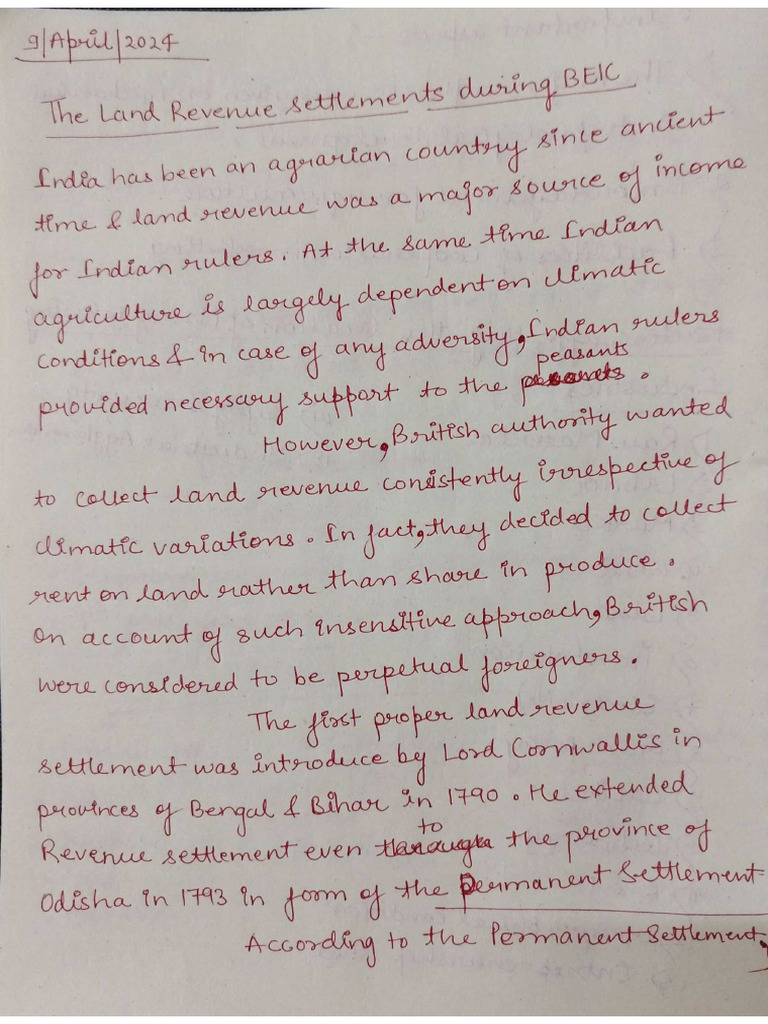 9/April/2024
The Land Revenue settlements during BEIC
India has been an agrarian country since ancient
time & land revenue was a major source of income
for Indian rulers. At the same time Indian
agriculture is largely dependent on climatic
conditions & in case of any adversity, Indian rulers
peasants
provided necessary support to the peasants.
However, British authority wanted
to collect land revenue consistently irrespective of
climatic variations. In fact, they decided to collect
rent on land rather than share in produce.
On account of such insensitive approach, British
were considered to be perpetual foreigners.
The first proper land revenue
settlement was introduce by Lord Cornwallis in
provinces of Bengal & Bihar in 1790. He extended
to
Revenue settlement even the province of
Odisha in 1793 in form of the Permanent Settlement
According to the Permanent Settlement,